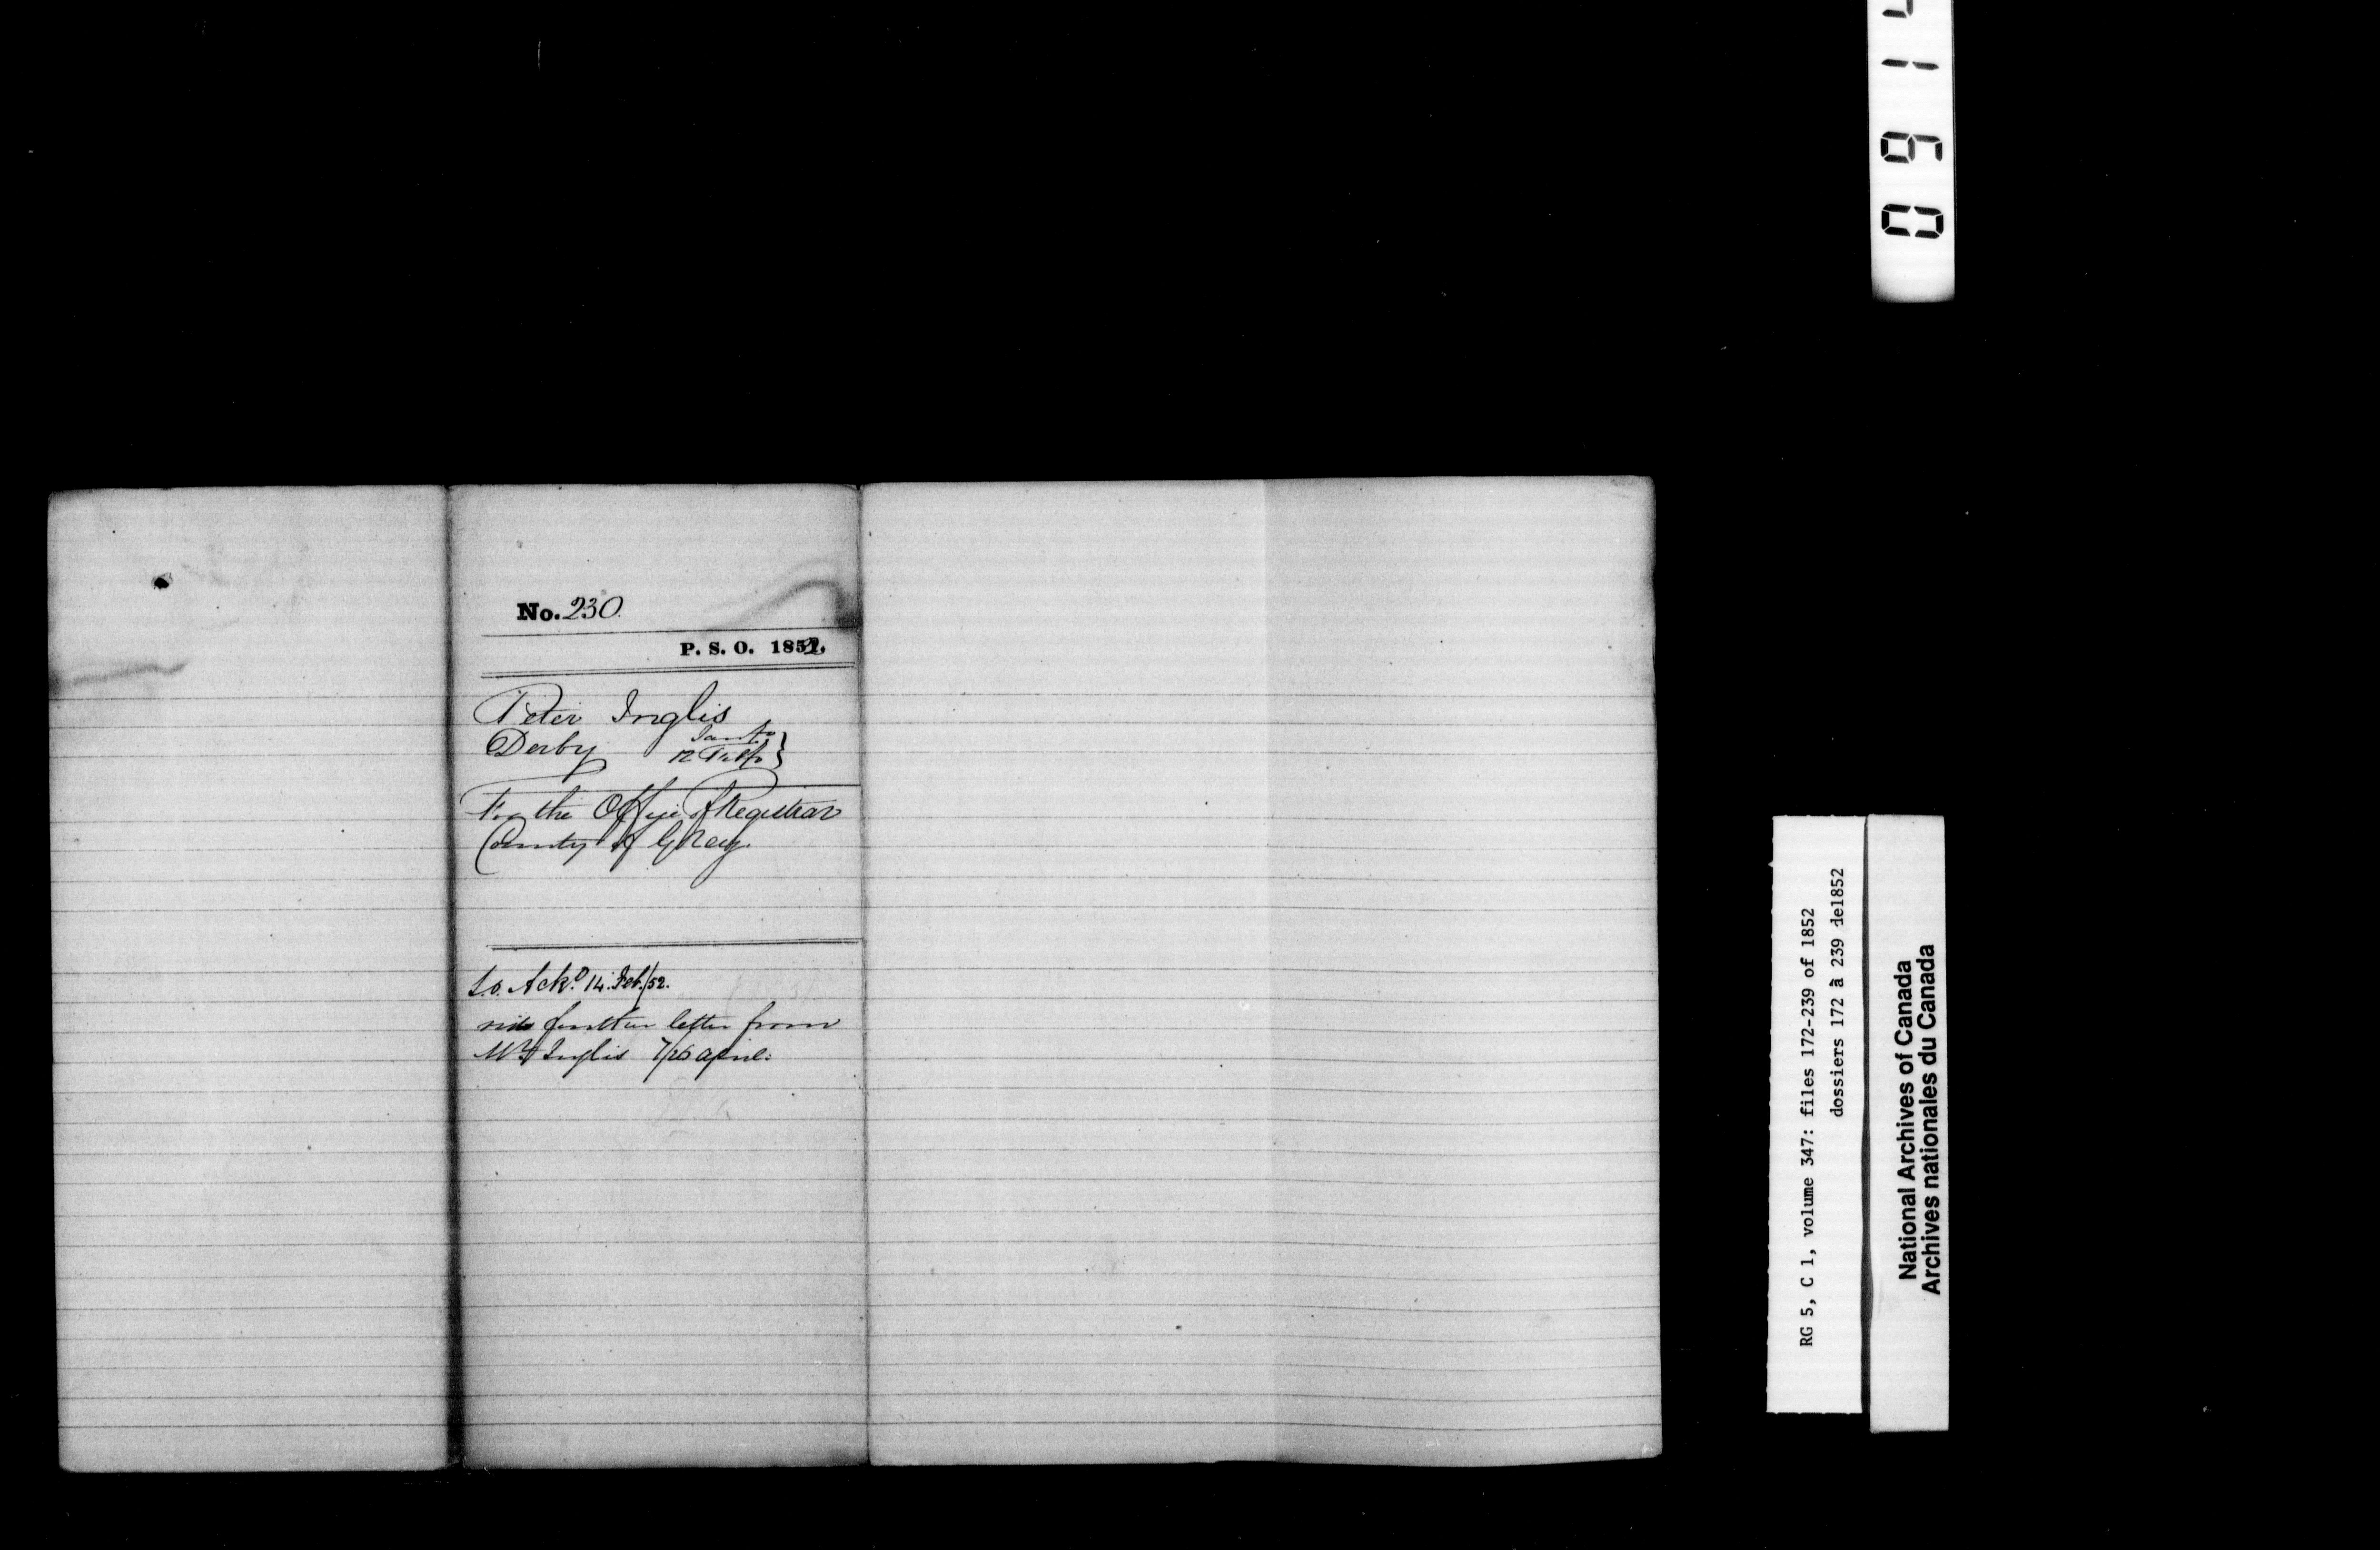 No. 230.
P. S. O. 1852.
Peter Inglis
Derby
12 Feb
For the Office of Registrar
County of Grey.
Ackd. 14. Feb./52.
further letter from
Mr Inglis 7/26 April.
0914
RG 5, C 1, volume 347: files 172-239 of 1852
dossiers 172 à 239 de1852
National Archives of Canada
Archives nationales du Canada